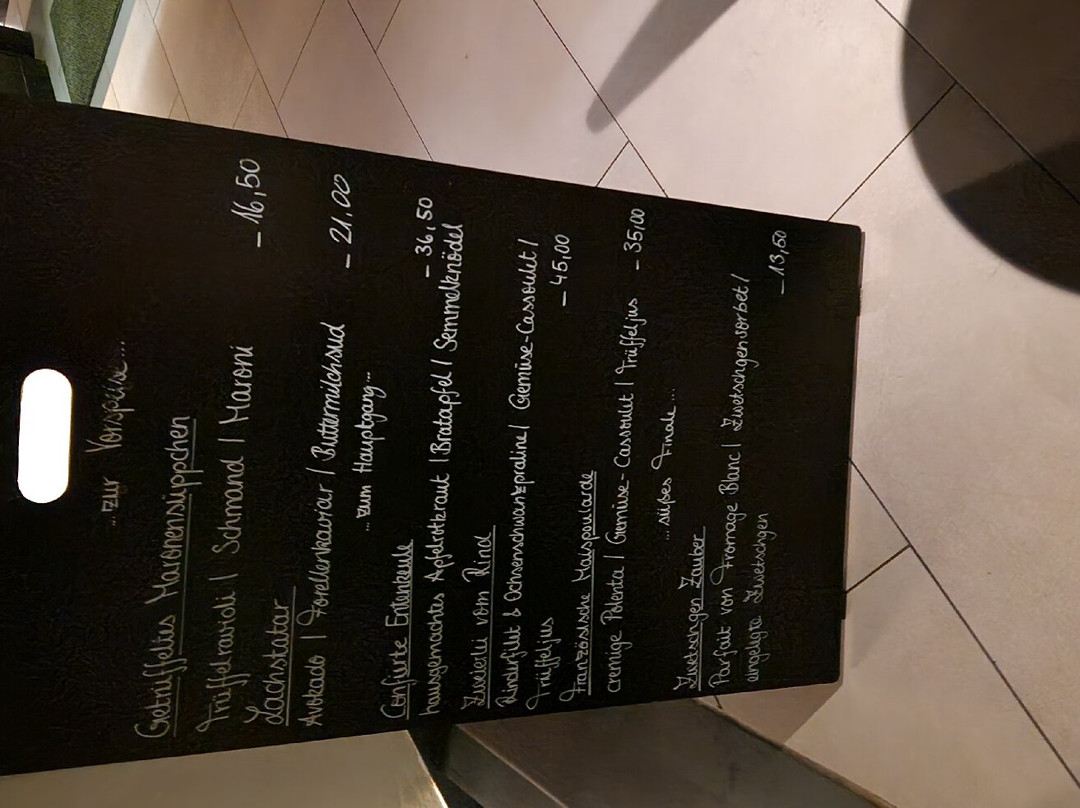 ...zur Vorspeise...
Getrüffeltes Maronensüppchen
Trüffelravioli / Schmand / Maroni - 16,50
Lachstatar
Avokado / Forellenkaviar / Buttermilchsud - 21,00
...zum Hauptgang...
Confierte Entenkeule
hausgemachtes Apfelrotkraut / Bratapfel / Semmelknödel - 36,50
Zweierlei vom Rind
Rinderfilet & Ochsenschwanzpraline / Gemüse-Cassoulet /
Trüffeljus - 45,00
Französische Maispoularde
cremige Polenta / Gemüse-Cassoulet / Trüffeljus - 35,00
...süßes Finale...
Zwetschgen Zauber
Parfait von Fromage Blanc / Zwetschgensorbet /
eingelegte Zwetschgen - 13,50